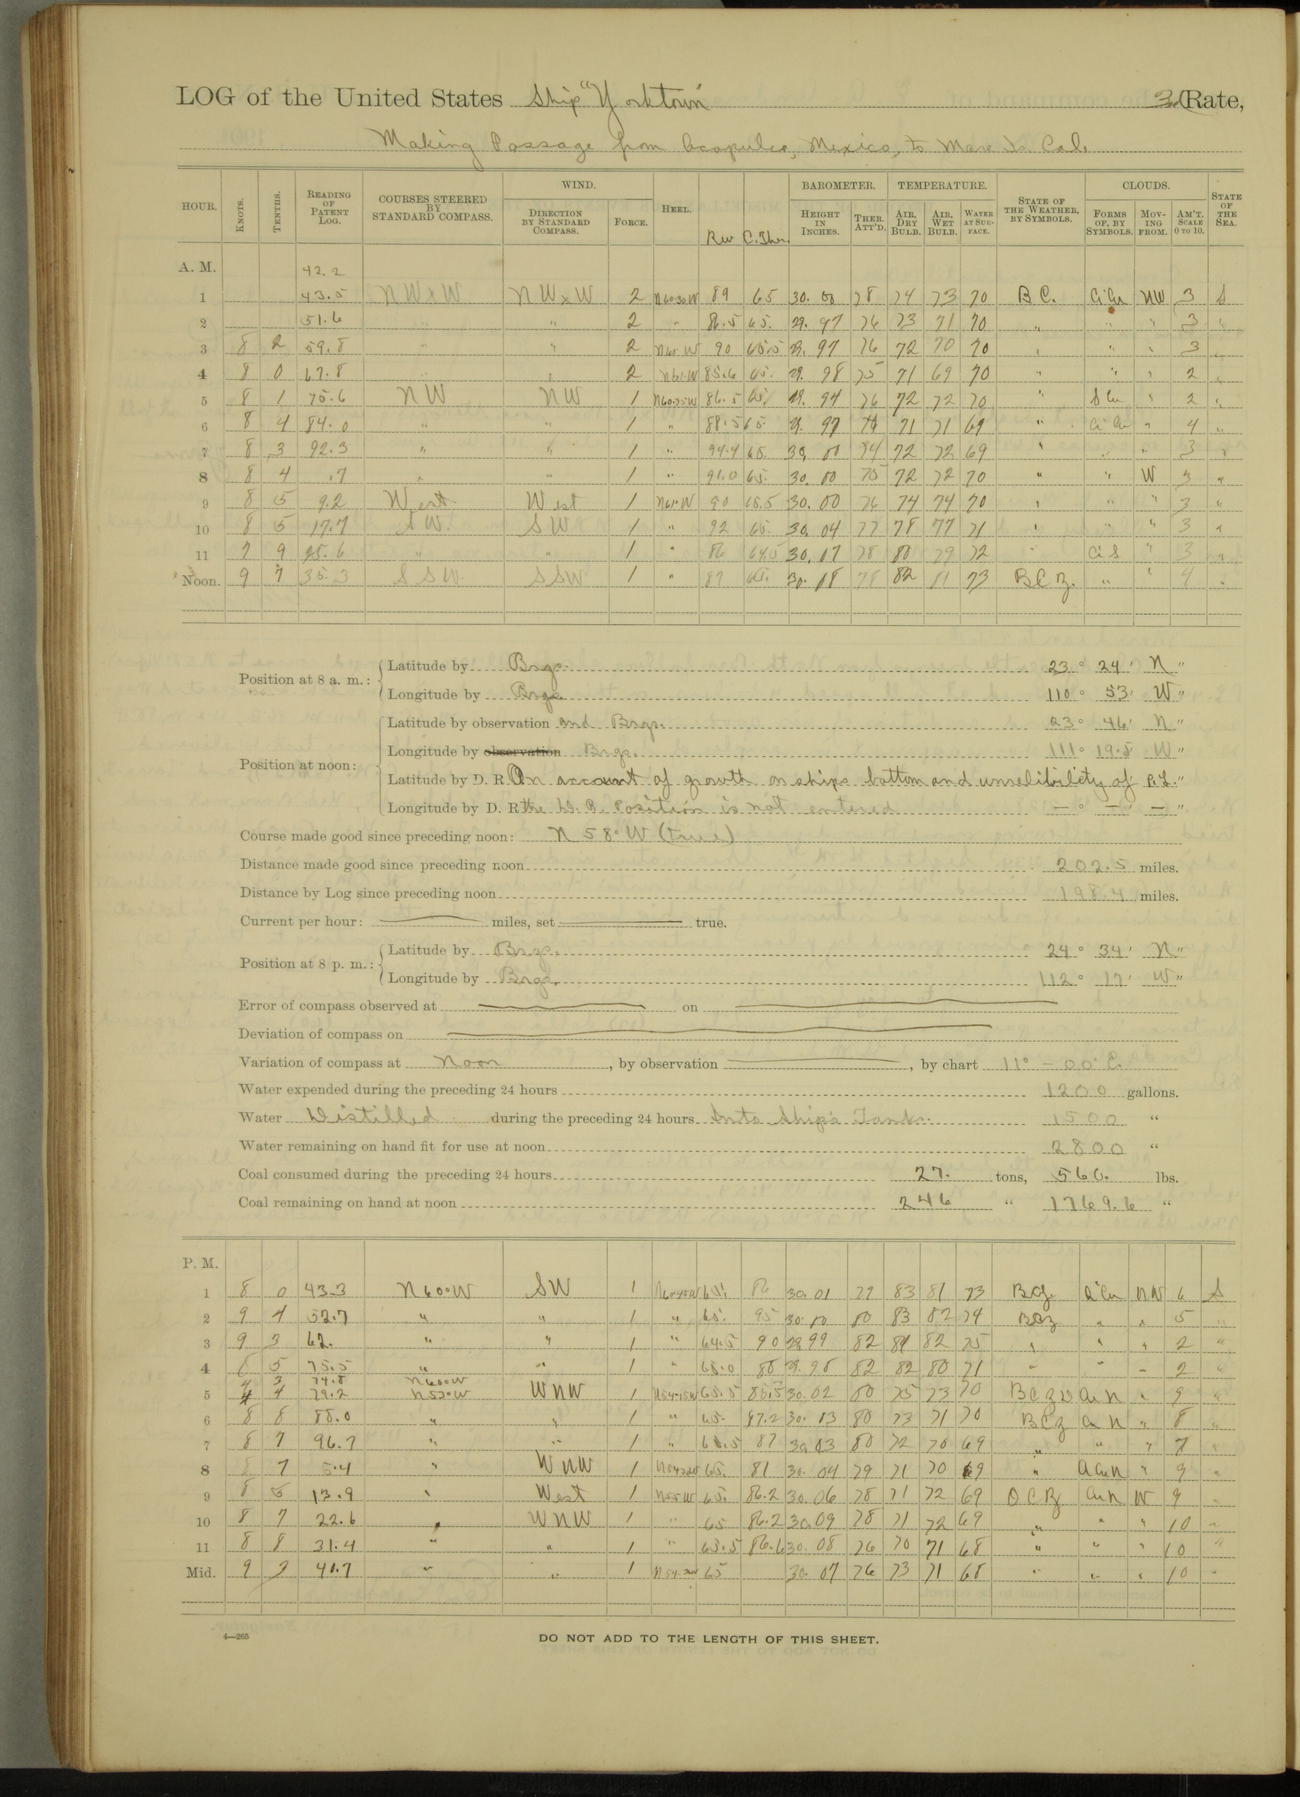 LOG of the United States Ship "Yorktown" 3d Rate,
Making Passage from Acapulco, Mexico, to Mare Is. Cal.
HOUR. KNOTS. TENTHS. READING OF PATENT LOG. COURSES STEERED BY STANDARD COMPASS. WIND. DIRECTION BY STANDARD COMPASS. FORCE. HEEL. Rev BAROMETER. HEIGHT IN INCHES. THER. ATT'D. TEMPERATURE. AIR, DRY BULB. AIR, WET BULB. WATER AT SURFACE. STATE OF THE WEATHER, BY SYMBOLS. CLOUDS. FORMS OF, BY SYMBOLS. MOVING FROM. AM'T. SCALE 0 TO 10. STATE OF THE SEA.
A. M. 42.2
1 43.5 NWxW NWxW 2 89 65 30.00 78 74 73 70 B C. Ci Cu NW 3 S
2 51.6 " " 2 " 86.5 65. 29.97 76 73 71 70 " " " 3 "
3 8 2 59.8 " " 2 N60°W 90 65.5 29.97 76 72 70 70 " " " 3 "
4 8 0 67.8 " " 2 N61°W 85.6 65. 29.98 75 71 69 70 " " " 2 "
5 8 1 75.6 NW NW 1 86.5 65 29.94 76 72 72 70 " S Cu " 2 "
6 8 4 84.0 " " 1 " 88.5 65. 29.97 74 71 71 69 " Ci Cu " 4 "
7 8 3 92.3 " " 1 " 94.4 65. 30.00 74 72 72 69 " " " 3 "
8 8 4 .7 " " 1 " 91.0 65. 30.00 75 72 72 70 " " W 3 "
9 8 5 9.2 West West 1 N61°W 90 65.5 30.00 76 74 74 70 " " " 3 "
10 8 5 17.7 SW. SW 1 " 92 65. 30.04 77 78 77 71 " " " 3 "
11 7 9 25.6 " " 1 " 86 64.5 30.07 78 80 79 72 " Ci S " 3 "
Noon. 9 7 35.3 SSW SSW 1 " 87 65. 30.08 78 82 81 73 B C Z. " " 4 "
Position at 8 a. m.: Latitude by Brgs. 23° 24' N "
Longitude by Brgs. 110° 53' W "
Position at noon: Latitude by observation and Brgs. 23° 46' N "
Longitude by observation Brgs. 111° 19.5' W "
Latitude by D. R. On account of growth on ships bottom and unrelibility of P.L. "
Longitude by D. R. the D. R. Position is not entered — ° — ' — "
Course made good since preceding noon: N 58° W (true)
Distance made good since preceding noon 202.5 miles.
Distance by Log since preceding noon 198.4 miles.
Current per hour: miles, set true.
Position at 8 p. m.: Latitude by Brgs. 24° 34' N "
Longitude by Brgs. 112° 17' W "
Error of compass observed at on
Deviation of compass on
Variation of compass at Noon, by observation, by chart 11° - 00' E.
Water expended during the preceding 24 hours 1200 gallons.
Water Distilled during the preceding 24 hours Into Ship's Tanks. 1500 "
Water remaining on hand fit for use at noon 2800 "
Coal consumed during the preceding 24 hours 27. tons, 560. lbs.
Coal remaining on hand at noon 246 " 1769.6 "
P. M.
1 8 0 43.3 N60°W SW 1 65. 86 30.01 79 83 81 73 BCZ Ci Cu NW 6 S
2 9 4 52.7 " " 1 " 65. 95 30.00 80 83 82 74 BCZ " " 5 "
3 9 3 62. " " 1 " 64.5 90 29.99 82 84 82 75 " " " 2 "
4 5 75.5 " " 1 " 65.0 88 29.98 82 82 80 71 " " " 2 "
3 74.8 N60°W
5 4 4 79.2 N53°W WNW 1 65.5 85.5 30.02 80 75 73 70 Cu N " 9 "
6 8 8 88.0 " " 1 " 65. 87.2 30.03 80 73 71 70 BCZ Cu N " 8 "
7 8 7 96.7 " " 1 " 87 30.03 80 72 70 69 " " " 7 "
8 8 7 5.4 " WNW 1 65. 81 30.04 79 71 70 69 " " 9 "
9 8 5 13.9 " West 1 N55°W 65. 86.2 30.06 78 71 72 69 O C Z Cu N W 9 "
10 8 7 22.6 " WNW 1 " 65 86.2 30.09 78 71 72 69 " " " 10 "
11 8 8 31.4 " " 1 " 63.5 86.6 30.08 76 70 71 68 " " " 10 "
Mid. 9 3 40.7 " " 1 65 30.07 76 73 71 68 " " " 10 "
4—265
DO NOT ADD TO THE LENGTH OF THIS SHEET.